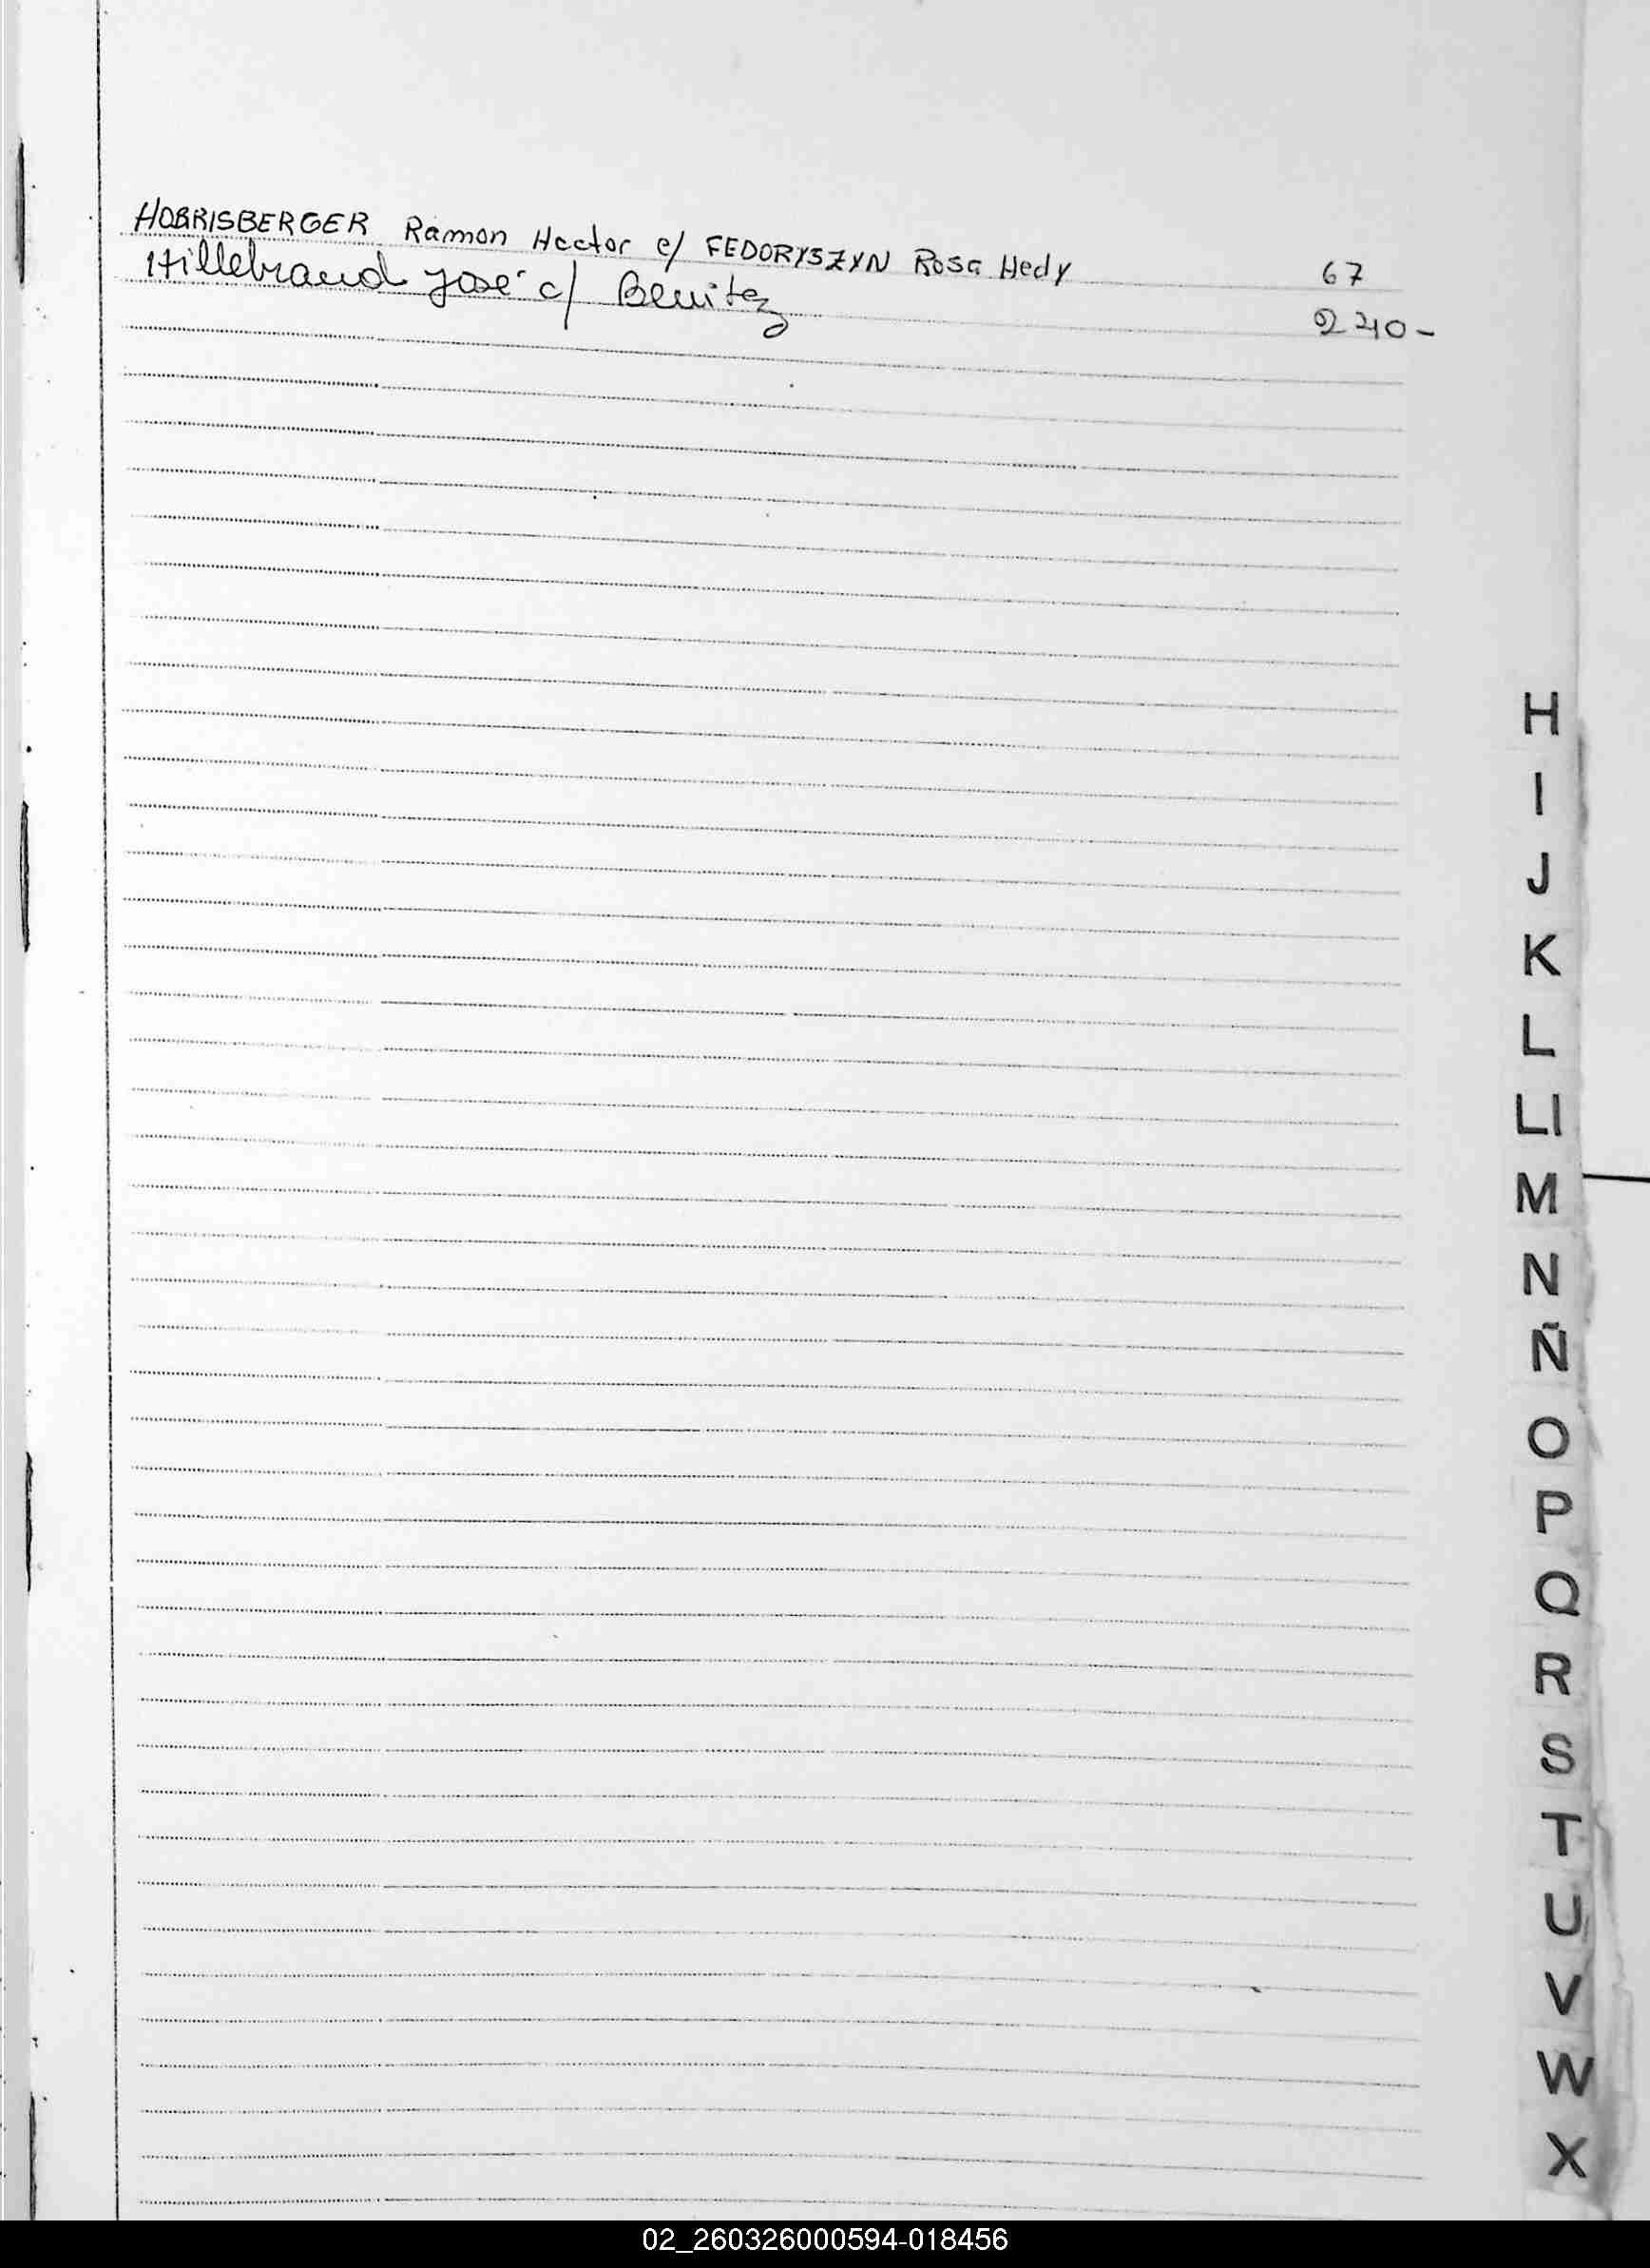 HOBRISBERGER Ramon Hector c/ FEDORYSZYN Rosa Hedy 67
Hillebrand José c/ Benitez 240-
H
I
J
K
L
LL
M
N
Ñ
O
P
Q
R
S
T
U
V
W
X
02_260326000594-018456